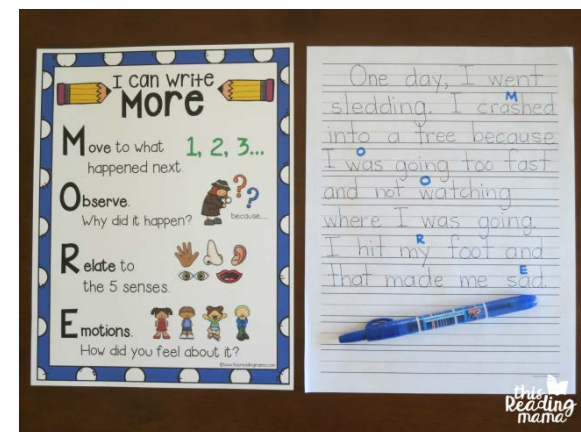 I can write
MORE
Move to what
happened next.
1, 2, 3...
Observe.
Why did it happen?
? ?
because...
Relate to
the 5 senses.
Emotions.
How did you feel about it?
©www.thisreadingmama.com
One day, I went
sledding. I crashed
M
into a tree because
O
I was going too fast
O
and not watching
where I was going.
R
I hit my foot and
E
that made me sad.
this
Reading
mama